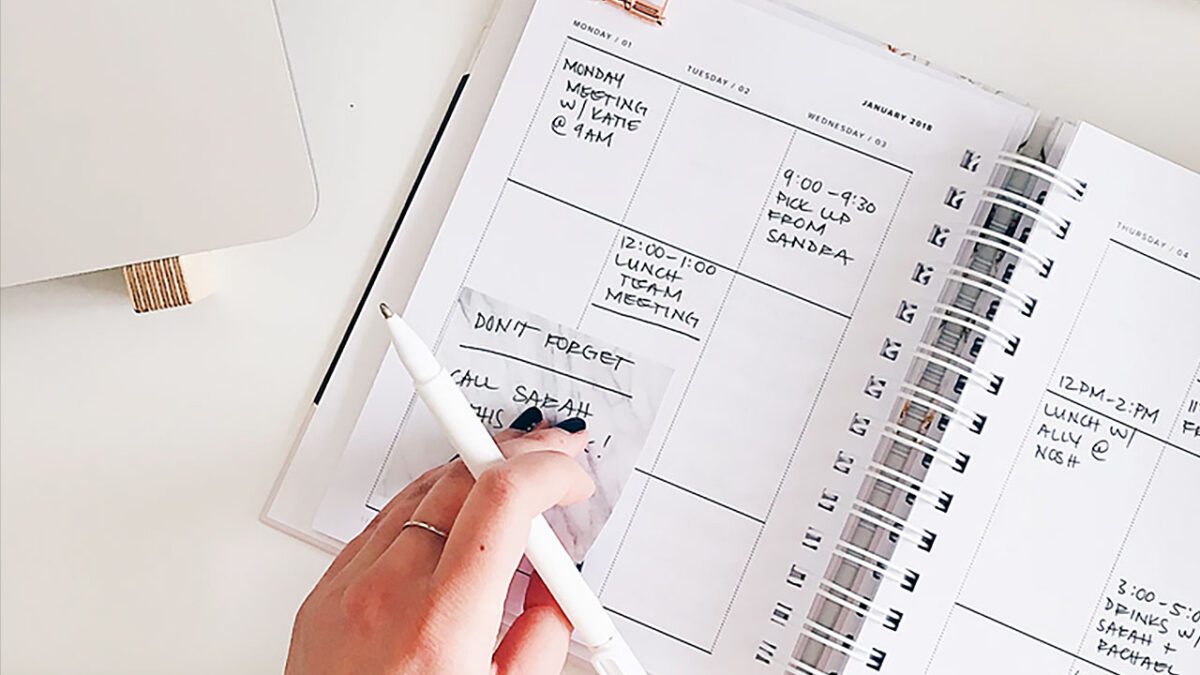 JANUARY 2018
MONDAY / 01
MONDAY
MEETING
W/ KATIE
@ 9AM
TUESDAY / 02
12:00-1:00
LUNCH
TEAM
MEETING
WEDNESDAY / 03
9:00-9:30
PICK UP
FROM
SANDRA
DON'T FORGET
CALL SARAH
THIS
THURSDAY / 04
12PM-2:PM
LUNCH W/
ALLY @
NOSH
3:00-5:0
DRINKS W/
SARAH +
RACHAEL